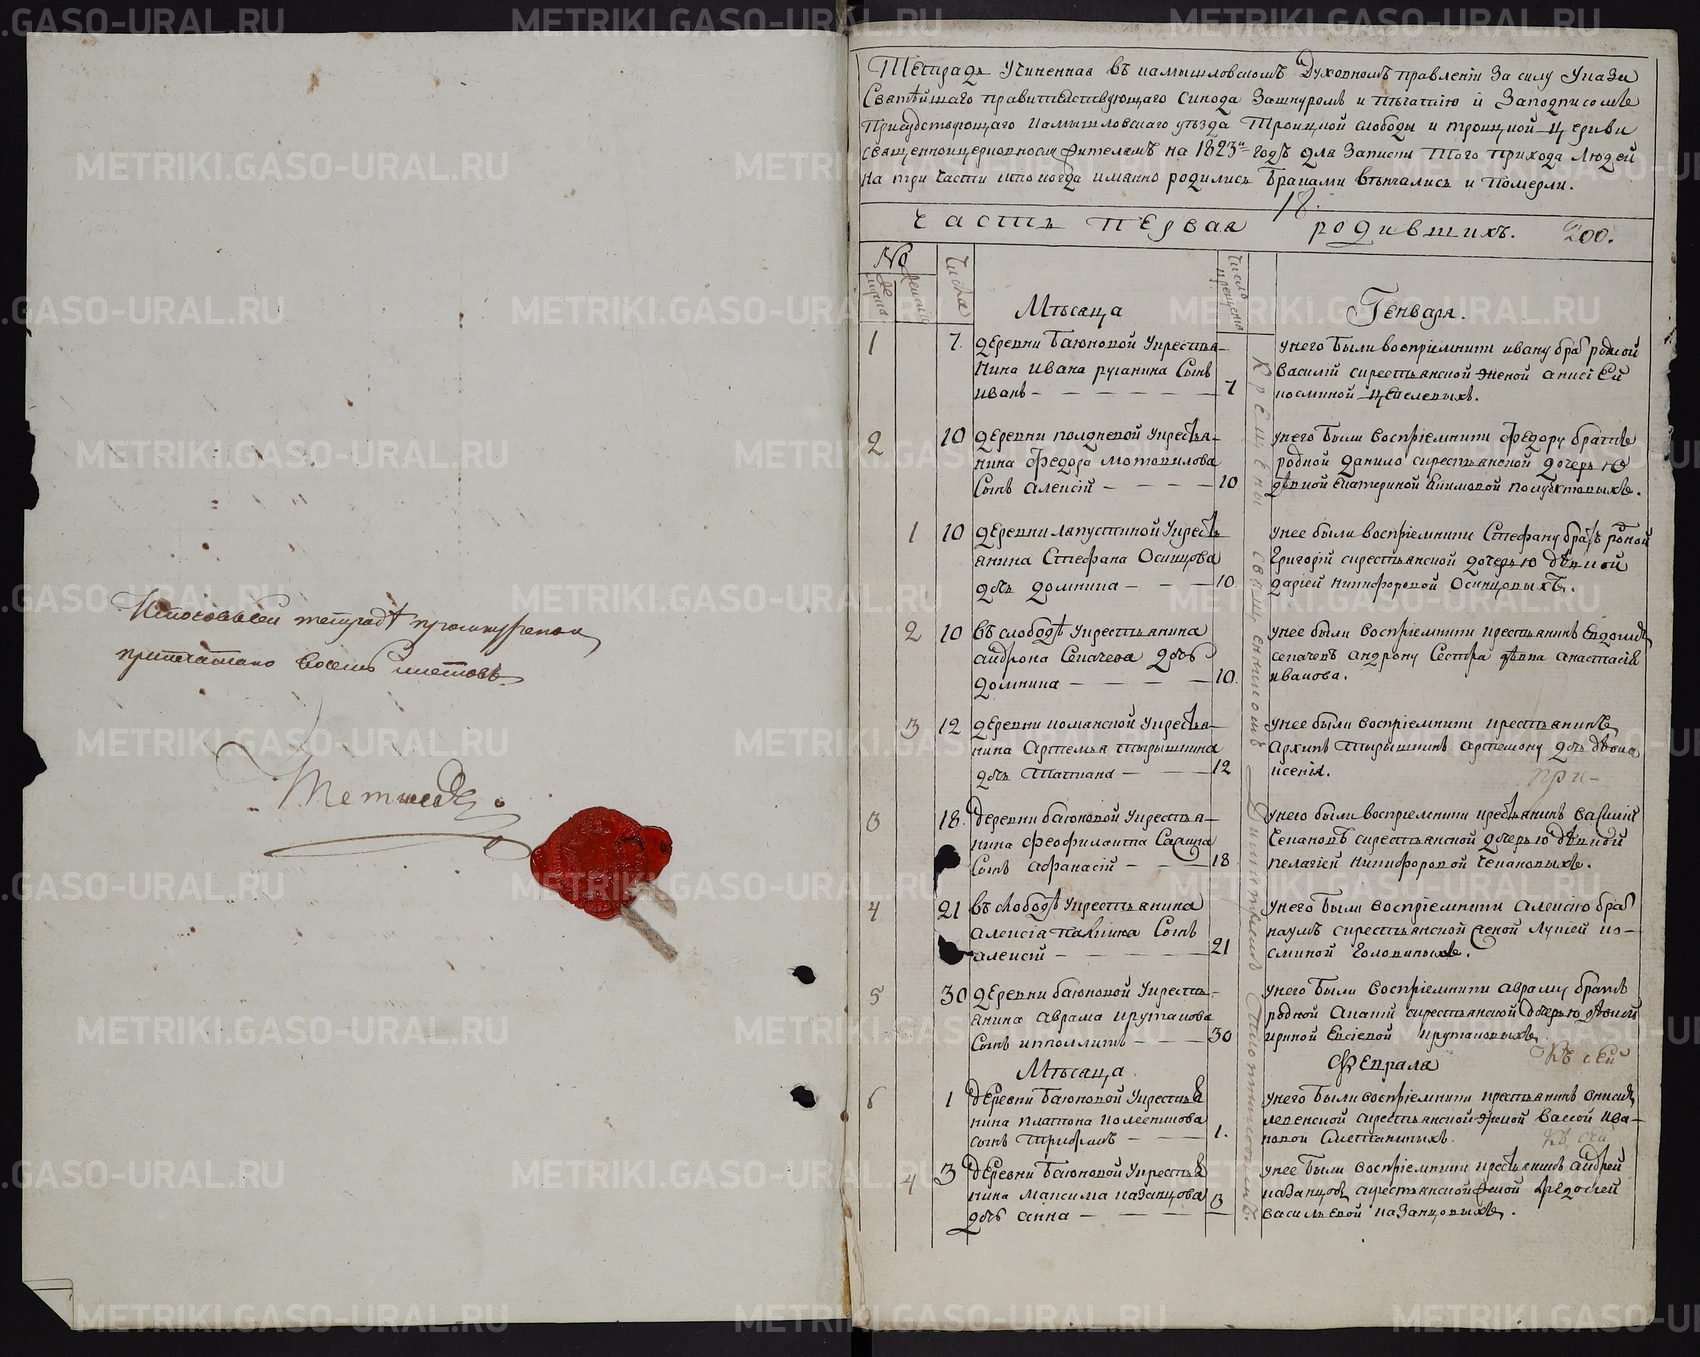 Тетрадь учиненная въ камышловскомъ Духовномъ правленіи За силу Указа
Святѣйшаго правительствующаго Синода Зашнуромъ и Печатью и Заподписомъ
Присудствующаго Камышловскаго уѣзда Троицкой слободы и троицкой церкви
священноцерковнослужителямъ на 1823й годъ для Записки Того прихода Людей
на три Части кто когда именно родились Браками вѣнчались и Померли.
часть первая родившихъ. 200.
№
Числа
Число крещенія
Мѣсяца
Генваря.
1 7. деревни Баюновой укрестья-
нина ивана русанина Сынъ
иванъ 7
унего были воспріемники ивану братъ родной
василій скрестьянской женой анисіей
косминой
2 10 деревни полдневой укрестья-
нина федора мотовилова
Сынъ алексій 10
унего были воспріемники федору братъ
родной данило скрестьянской дочерью
дѣвкой екатериной
1 10 деревни лапушкиной укресть
янина Стефана Осинцова
дочь домнина 10
унее были воспріемники Стефану братъ родной
григорій скрестьянской дочерью дѣвкой
дарьей никифоровой Осинцовыхъ.
2 10 въ слободѣ укрестьянина
андрона Сепачева дочь
домнина 10.
унее были воспріемники крестьянинъ евдокимъ
сепачевъ андрону Сестра дѣвка анастасія
иванова.
3 12 деревни команской укрестья-
нина артемья тырышкина
дочь татіана 12
унее были воспріемники крестьянинъ
архипъ тырышкинъ артемону дочь дѣвка
ксенія.
при-
3 18. деревни баюновой укрестья-
нина феофилакта
Сынъ афанасій 18
унего были воспріемники крестьянинъ василій
Чепановъ скрестьянской дочерью дѣвкой
пелагіей никифоровой Чепановыхъ.
4 21 въ слободѣ укрестьянина
алексія Сынъ
алексій 21
унего были воспріемники алексію братъ
наумъ скрестьянской женой лукіей ко-
сминой головиныхъ.
5 30 деревни баюновой укресть-
янина аврама крутакова
Сынъ ипполитъ 30
унего были воспріемники авраму братъ
родной скрестьянской дочерью дѣвкой
ириной крутаковыхъ
Мѣсяца
Февраля
къ сей
6 1 деревни Баюновой укрестья
нина платона
сынъ трифонъ 1.
унего были воспріемники крестьянинъ
скрестьянской женой васой ива-
новой Сметаниныхъ.
къ сей
4 3 деревни Баюновой укрестья
нина максима казанцова
дочь анна 3
унее были воспріемники крестьянинъ андрей
казанцовъ скрестьянской женой федосьей
васильевой казанцовыхъ.
Крещены священникомъ Димитріемъ
тетрадѣ прошнуренои
припечатано восемь листовъ
METRIKI.GASO-URAL.RU